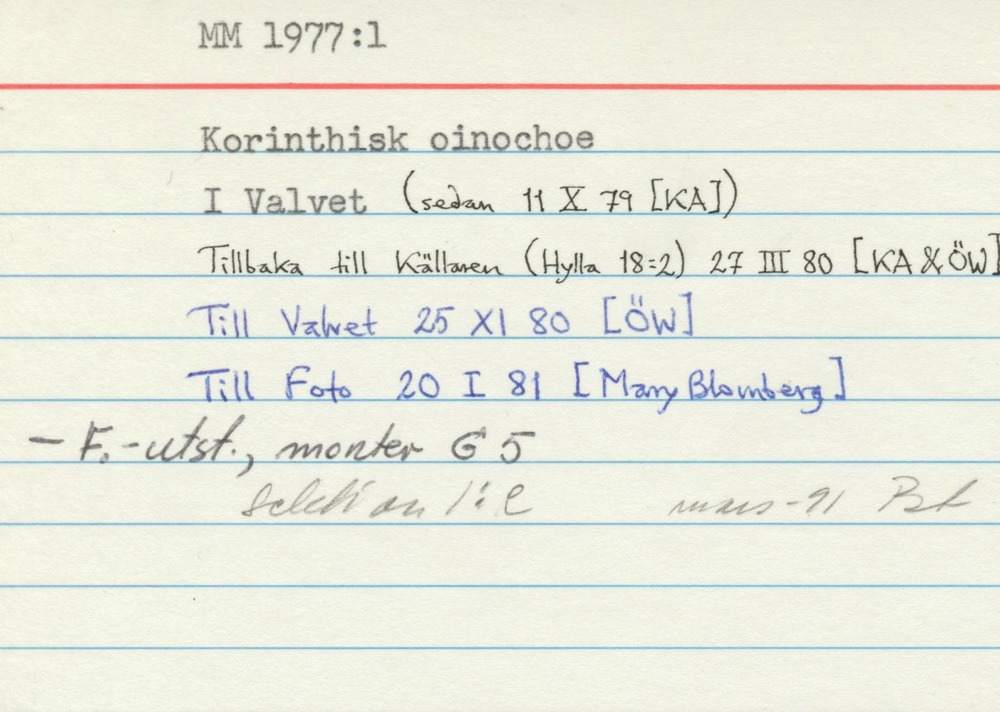 MM 1977:1
Korinthisk oinochoe
I Valvet (sedan 11 X 79 [KA])
Tillbaka till Källaren (Hylla 18:2) 27 III 80 [KA & ÖW]
Till Valvet 25 XI 80 [ÖW]
Till Foto 20 I 81 [Mary Blomberg]
— F.-utst., monter G 5
sektion 1:2 mars -91